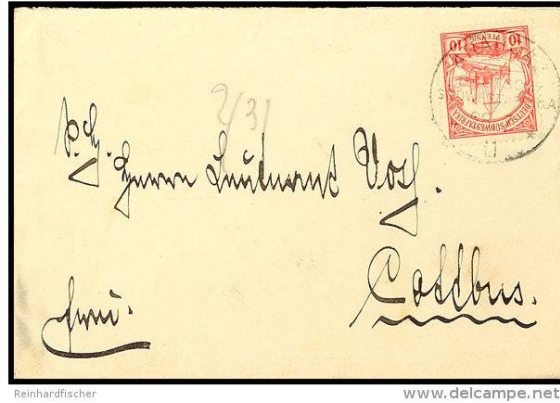 10 PFENNIG 10
DEUTSCH-SÜDWESTAFRIKA
2/31
Herrn Leutnant Voß.
Cottbus.
Reinhardfischer
www.delcampe.net